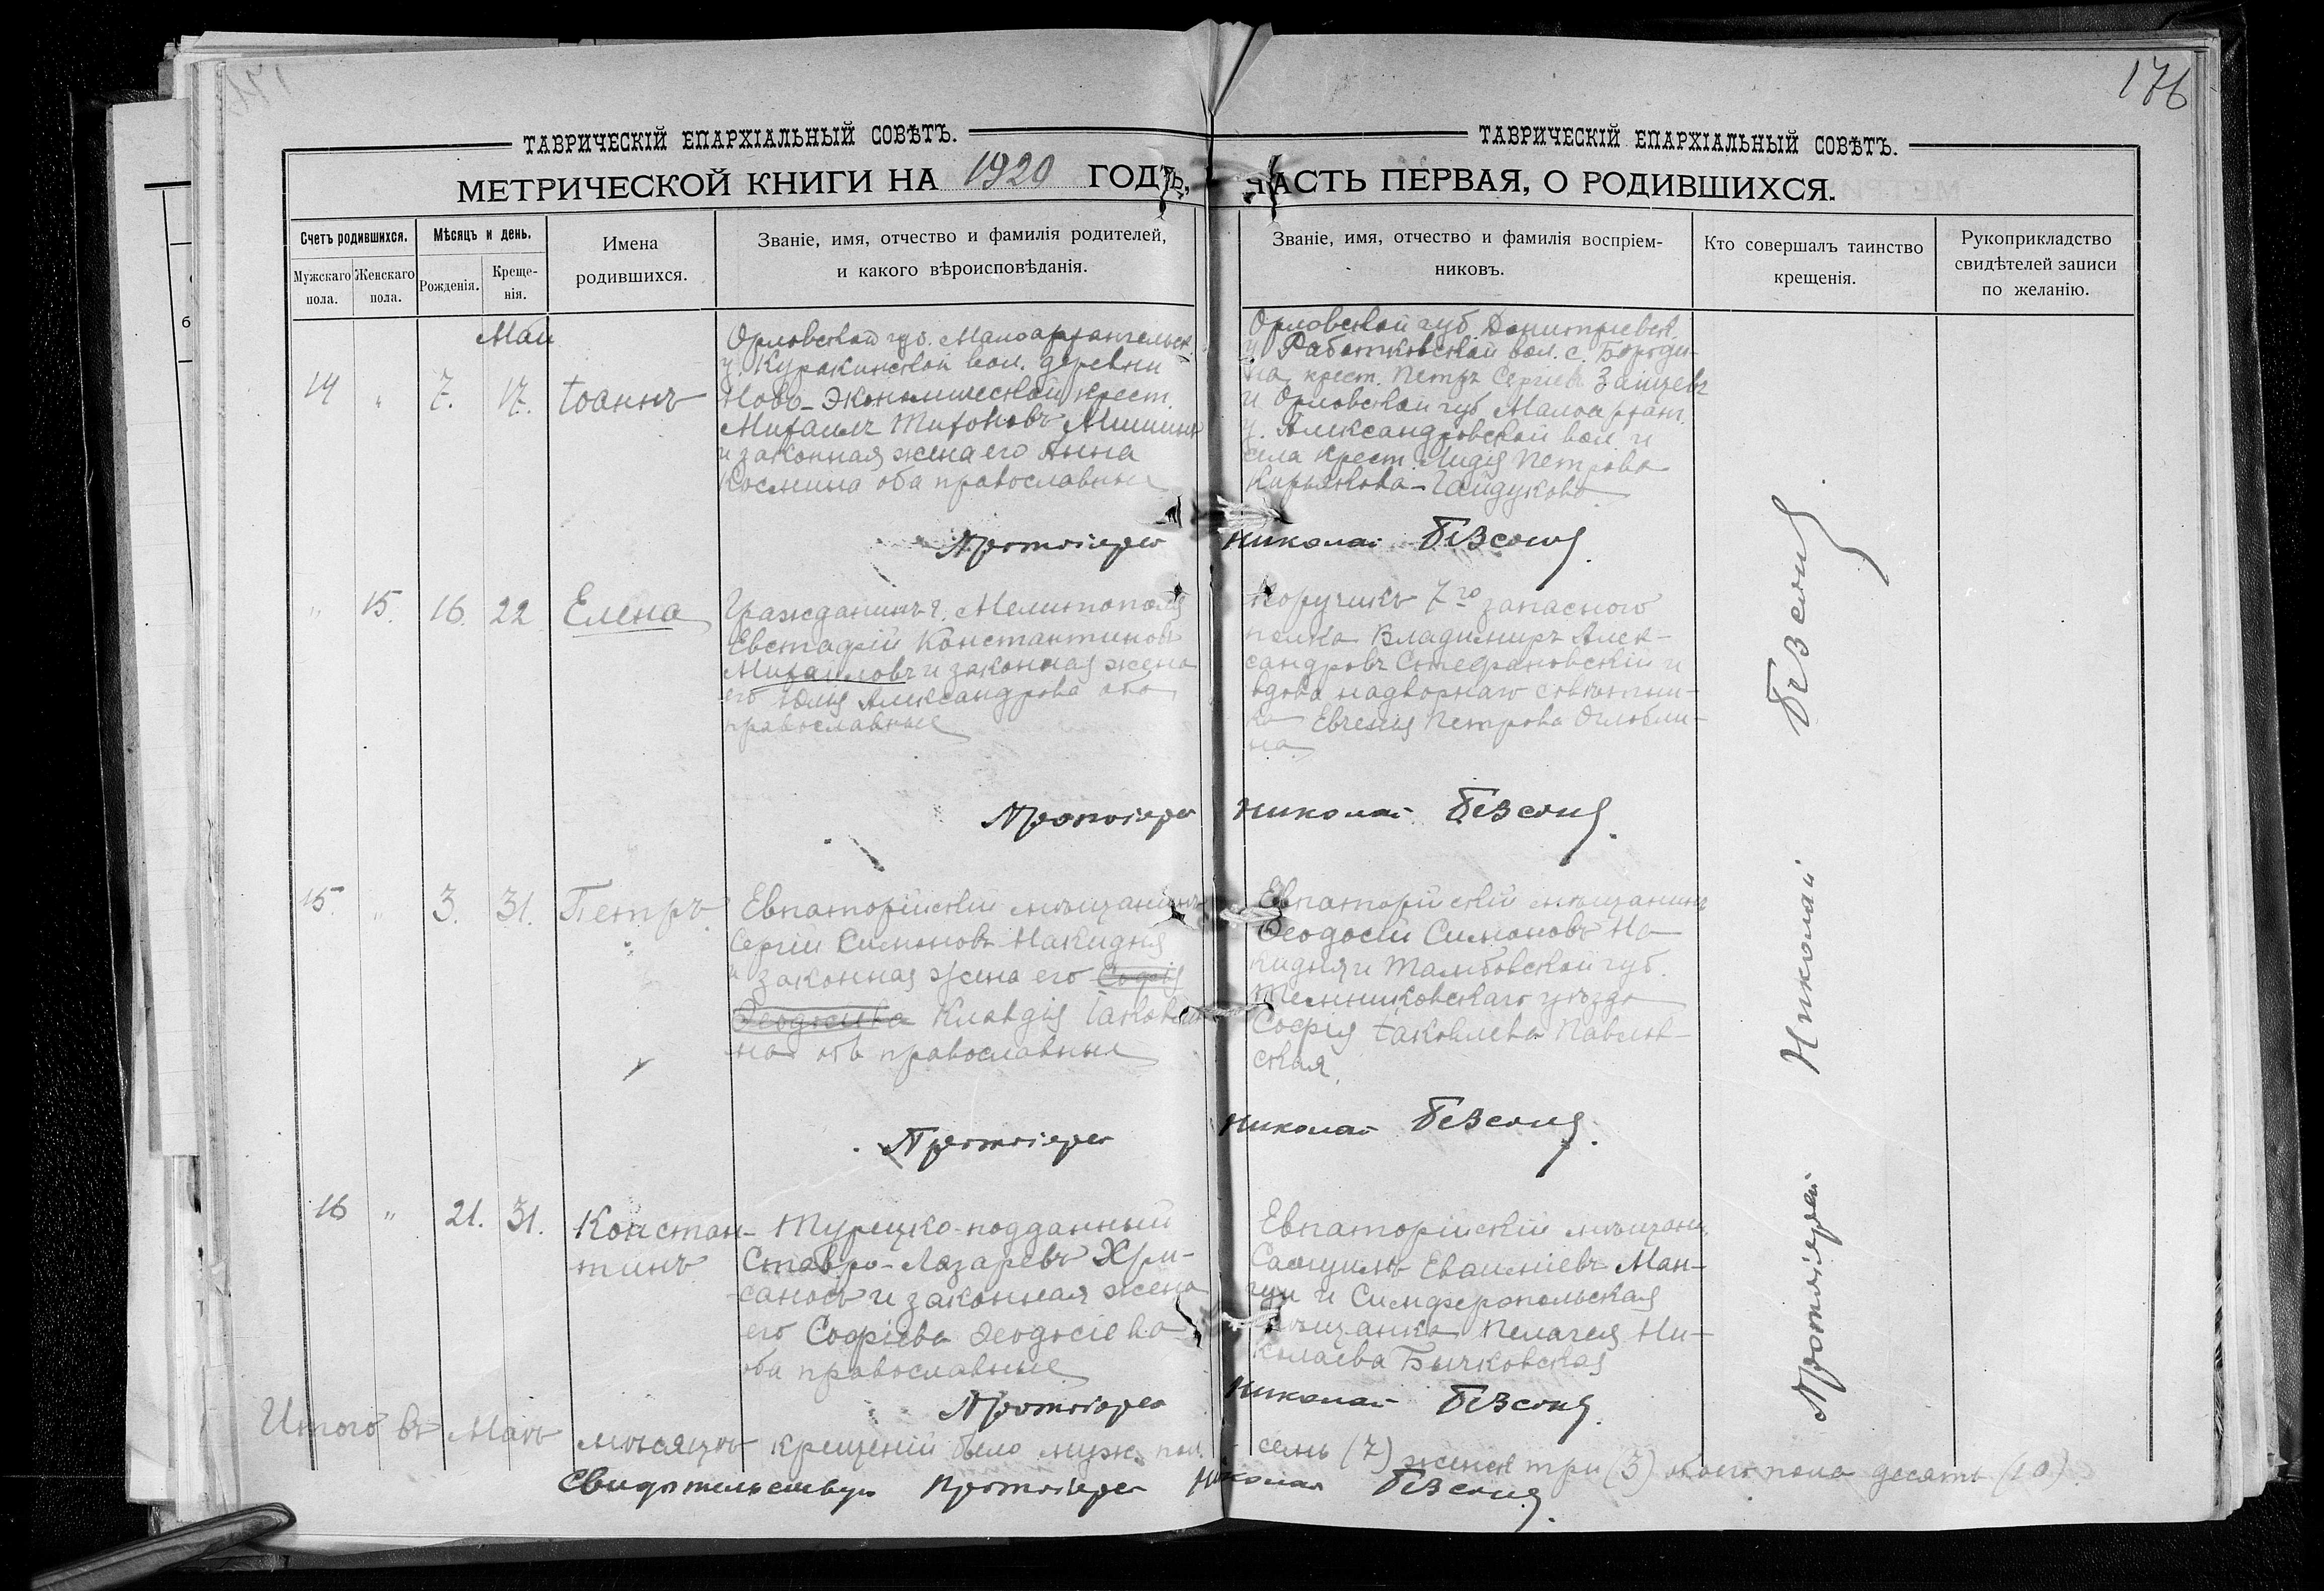 176
ТАВРИЧЕСКІЙ ЕПАРХІАЛЬНЫЙ СОВѢТЪ.
ТАВРИЧЕСКІЙ ЕПАРХІАЛЬНЫЙ СОВѢТЪ.
МЕТРИЧЕСКОЙ КНИГИ НА 1920 ГОДЪ, ЧАСТЬ ПЕРВАЯ, О РОДИВШИХСЯ.
Счетъ родившихся.
Мужскаго пола.
Женскаго пола.
Мѣсяцъ и день.
Рожденія.
Креще-
нія.
Имена
родившихся.
Званіе, имя, отчество и фамилія родителей,
и какого вѣроисповѣданія.
Званіе, имя, отчество и фамилія воспріем-
никовъ.
Кто совершалъ таинство
крещенія.
Рукоприкладство
свидѣтелей записи
по желанію.
Май
14 " 7. 17. Іоаннъ
Орловской губ. Малоархангельск.
у. Куракинской вол. деревни
Ново-Экономической крест.
Михаилъ Тихоновъ
и законная жена его Анна
Космина оба православные
Орловской губ. Димитріевск.
у. Работковской вол. с. Бороди-
на крест. Петръ Сергіевъ Зайцевъ
и Орловской губ. Малоарханг.
у. Александровской вол. и
села крест. Лидія Петрова
Кирьякова-Гайдукова
Протоіерей Николай Безсонов.
" 15. 16. 22 Елена
Гражданинъ г. Мелитополя
Евстафій Константиновъ
Михайловъ и законная жена
его Юлія Александрова оба
православные
Поручикъ 7го запасного
полка Владимиръ Алек-
сандровъ Стефановскій и
вдова надворнаго совѣтни-
ка Евгенія Петрова Оглобли-
на
Протоіерей Николай Безсонов.
15. " 3. 31. Петръ
Евпаторійскій мѣщанинъ
Сергій Симоновъ Накидня
и законная жена его Софія
Ѳеодосіева Клавдія Іаковле-
на оба православные
Евпаторійскій мѣщанинъ
Ѳеодосій Симоновъ На-
кидня и Тамбовской губ.
Темниковскаго уѣзда
Софія Іаковлева Павлов-
ская.
Протоіерей Николай Безсонов.
16 " 21. 31. Констан-
тинъ
Турецко-подданный
Ставро-Лазаревъ Хри-
саносъ и законная жена
его Софіева Ѳеодосіева
оба православные
Евпаторійскій мѣщанин.
Самуилъ Манг-
и Симферопольская
мѣщанка Пелагея Ни-
колаева Бычковская
Протоіерей Николай Безсонов.
Протоіерей Николай Безсонов
Итого въ Маѣ мѣсяцѣ крещеній было муж. пол. семь (7) женск. три (3) обоего пола десять (10).
Свидѣтельствую Протоіерей Николай Безсонов.